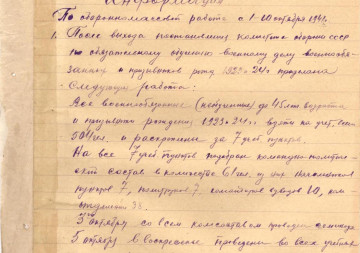 Информация
По оборонмассовой работе с 1-10 октября 1941г.
1. После выхода постановления комитета обороны СССР
об обязательному обучению военному делу военнообя-
занных и призывников рожд 1923-24г. проделана
Следующая работа:
Все военнообязанные (необученные) до 45 лет возраста
и призывники рождения 1923-24г. взяты на учет.
504 чел. и раскреплены за 7 учеб. пунктов.
На все 7 учеб пунктов подобран командно политичес-
кий состав в количестве 61 чел. из них начальников
пунктов 7, политруков 7, командиров взводов 10, ком
отделений 38.
3 октября со всем комсоставом проведен семинар
5 октября в воскресенье проведены во всех учебных